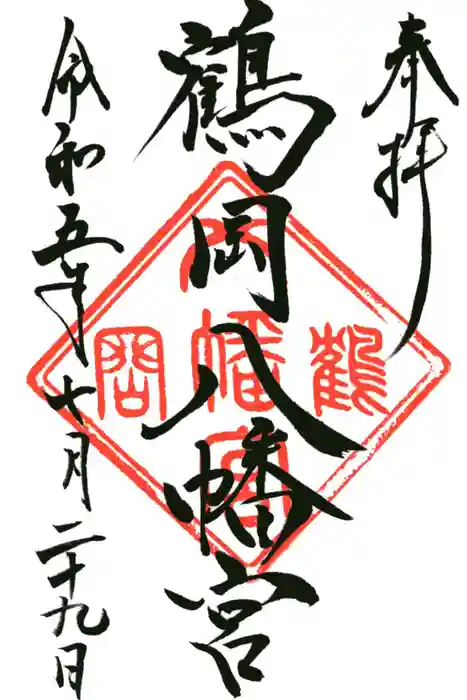 奉拝
鶴岡八幡宮
令和五年十月二十九日
鶴
八幡宮
岡